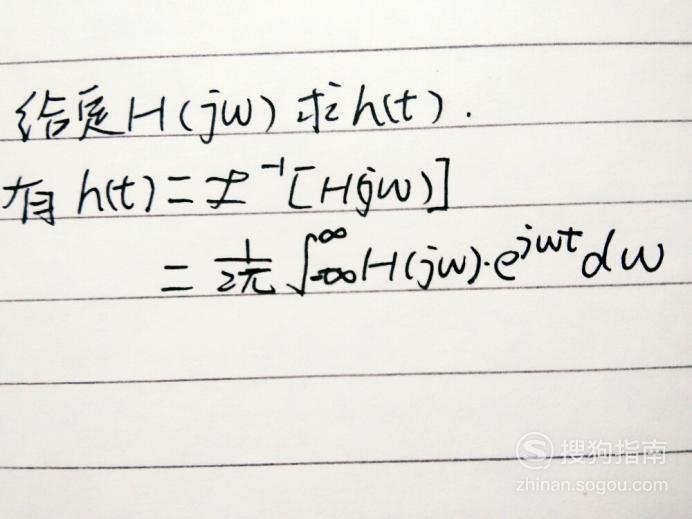 给定H(jω)求h(t).
有 h(t)=ℱ⁻¹[H(jω)]
= 1/2π ∫_{-∞}^{∞} H(jω)·e^{jωt} dω
搜狗指南
zhinan.sogou.com